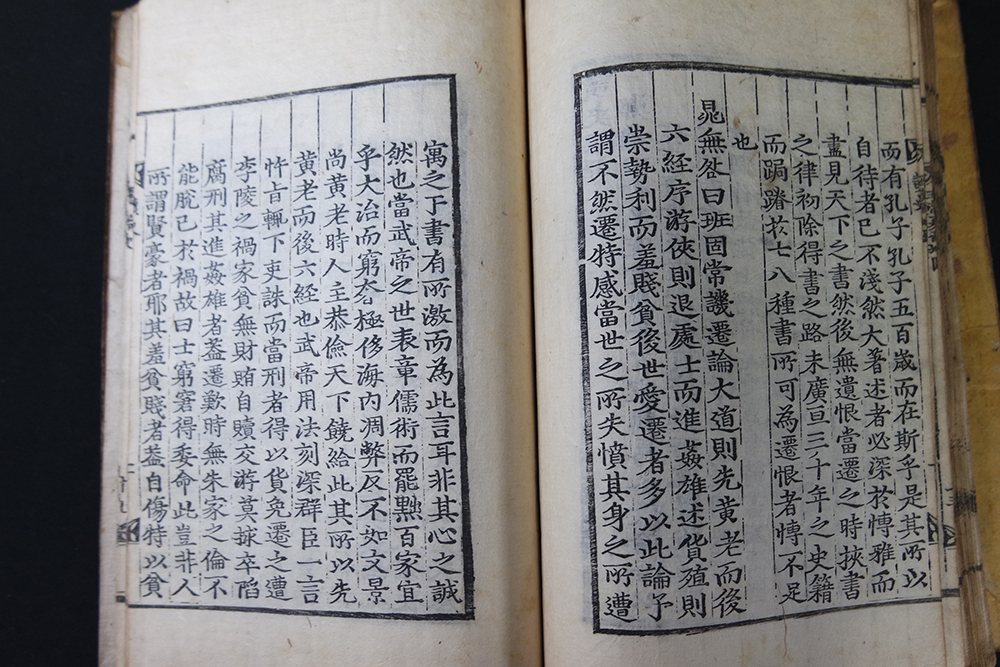 而有孔子孔子五百歲而在斯乎是其所以
自待者已不淺然大著述者必深於愽雅而
盡見天下之書然後無遺恨當遷之時挾書
之律初除得書之路未廣亘三十年之史籍
而跼蹐扵七八種書所可為遷恨者愽不足
也
晁無咎曰班固常譏遷論大道則先黃老而後
六經序游俠則退處士而進姦雄述貨殖則
崇勢利而羞賤貧後世愛遷者多以此論予
謂不然遷特感當世之所失憤其身之所遭
寓之于書有所激而為此言耳非其心之誠
然也當武帝之世表章儒術而罷黜百家宜
乎大治而窮奢極侈海內凋弊反不如文景
尚黃老時人主恭儉天下饒給此其所以先
黃老而後六經也武帝用法刻深群臣一言
忤旨輒下吏誅而當刑者得以貨免遷之遭
李陵之禍家貧無財賄自贖交游莫捄卒陷
腐刑其進姦雄者盖遷歎時無朱家之倫不
能脫已於禍故曰士窮窘得委命此豈非人
所謂賢豪者耶其羞貧賤者盖自傷特以貧